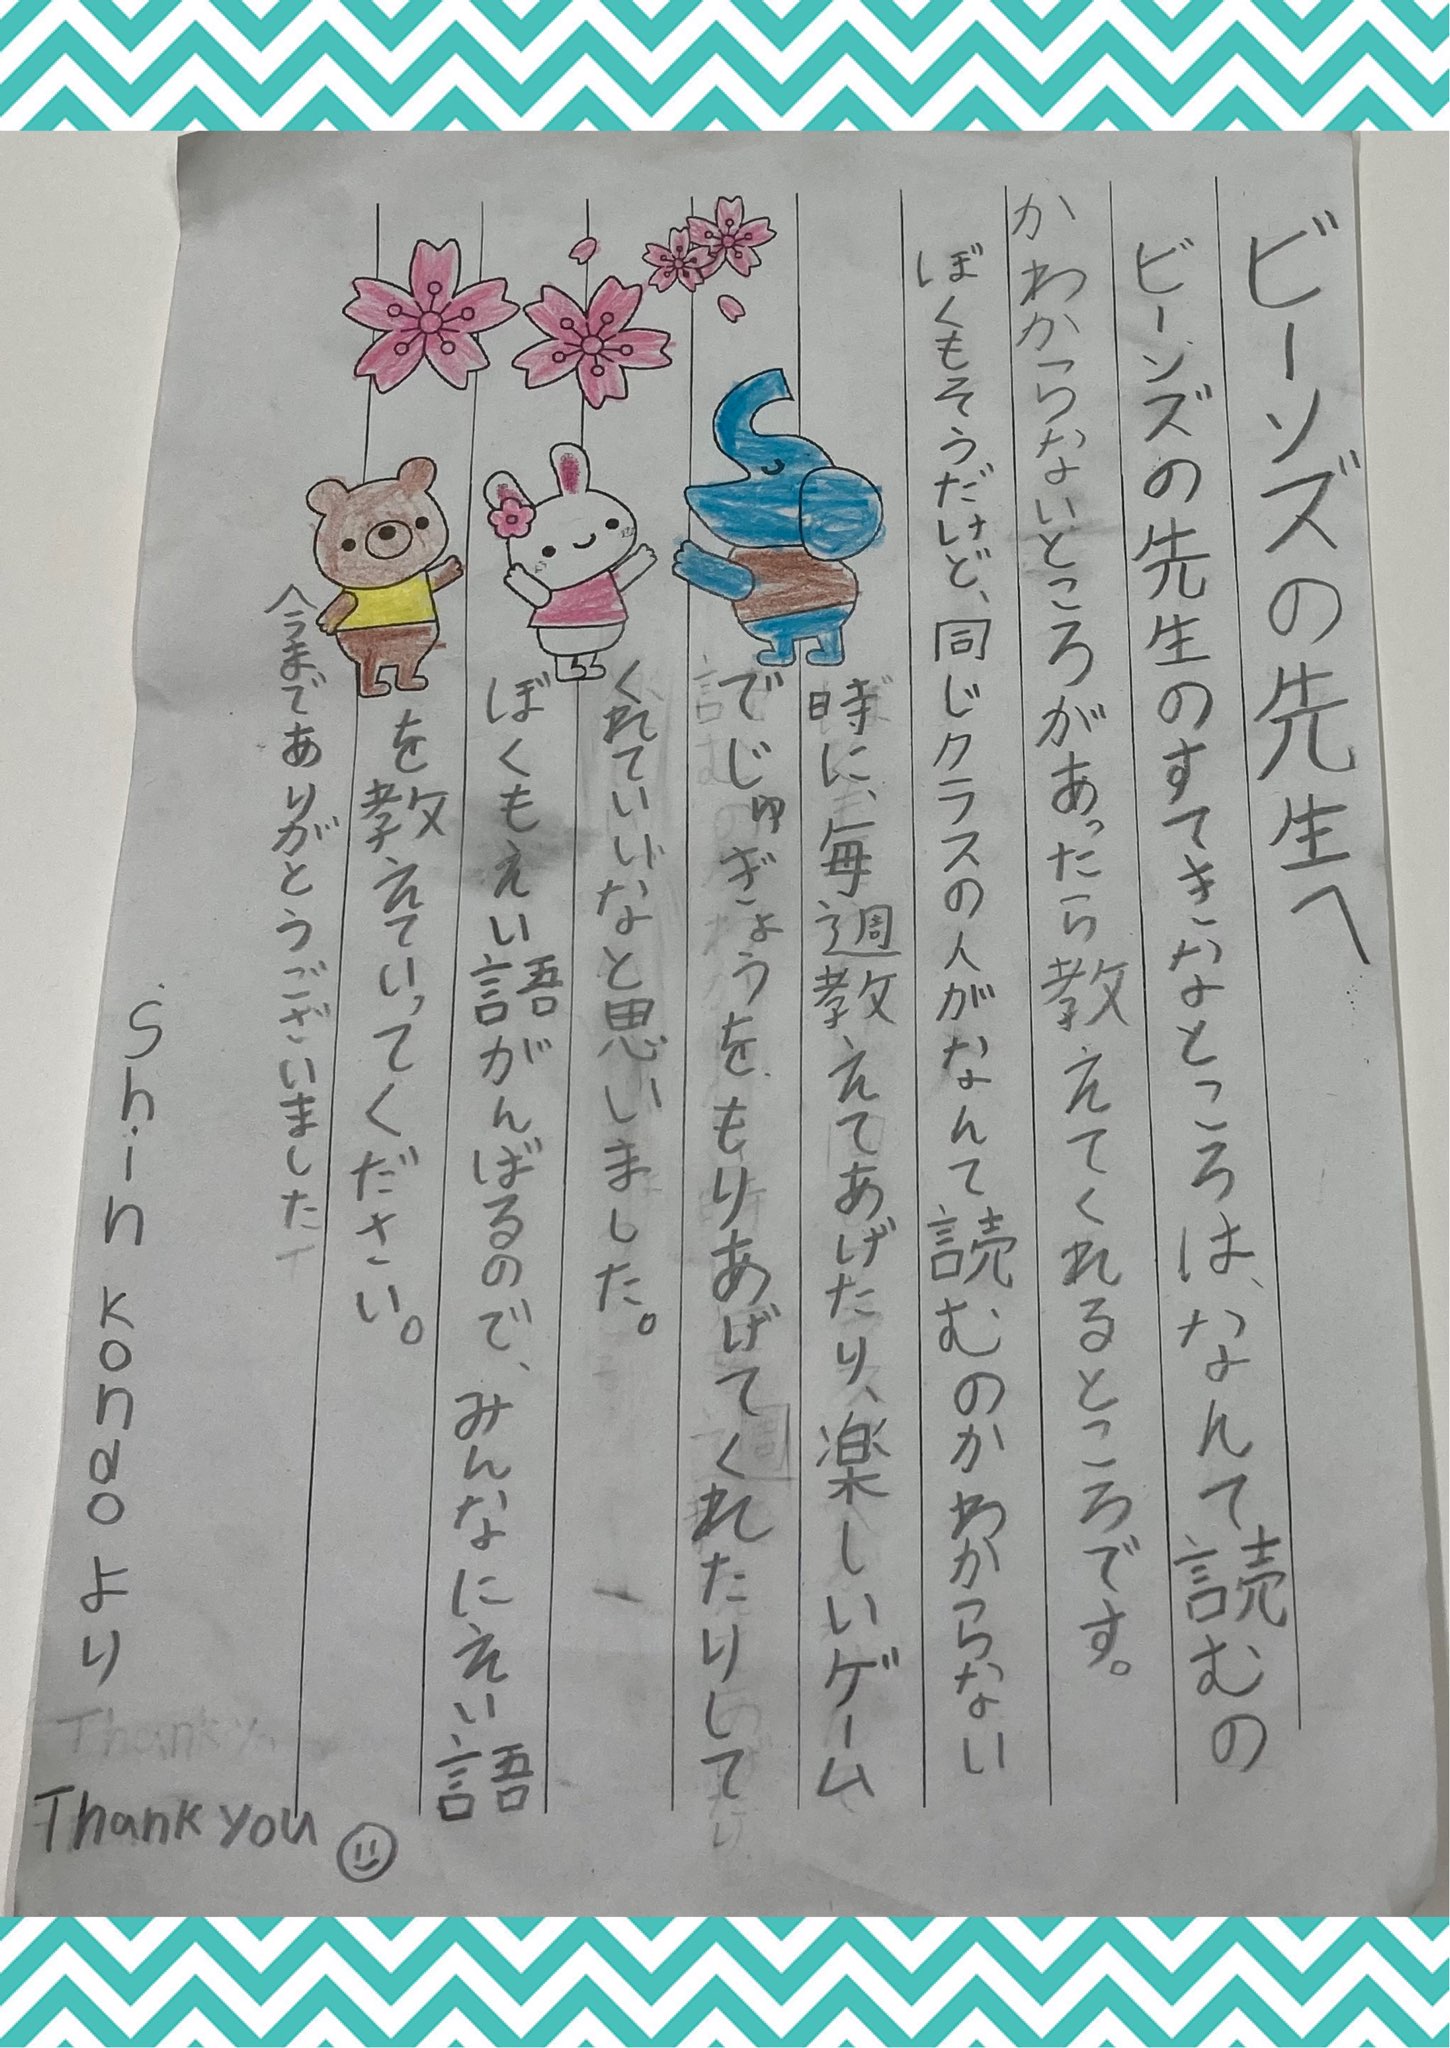 ビーンズの先生へ
ビーンズの先生のすてきなところは、なんて読むの
かわからないところがあったら教えてくれるところです。
ぼくもそうだけど、同じクラスの人がなんて読むのかわからない
時に、毎週教えてあげたり、楽しいゲーム
でじゅぎょうをもりあげてくれたりして
くれていいなと思いました。
ぼくもえい語がんばるので、みんなにえい語
を教えていってください。
今までありがとうございました
Shin Kondoより
Thank you